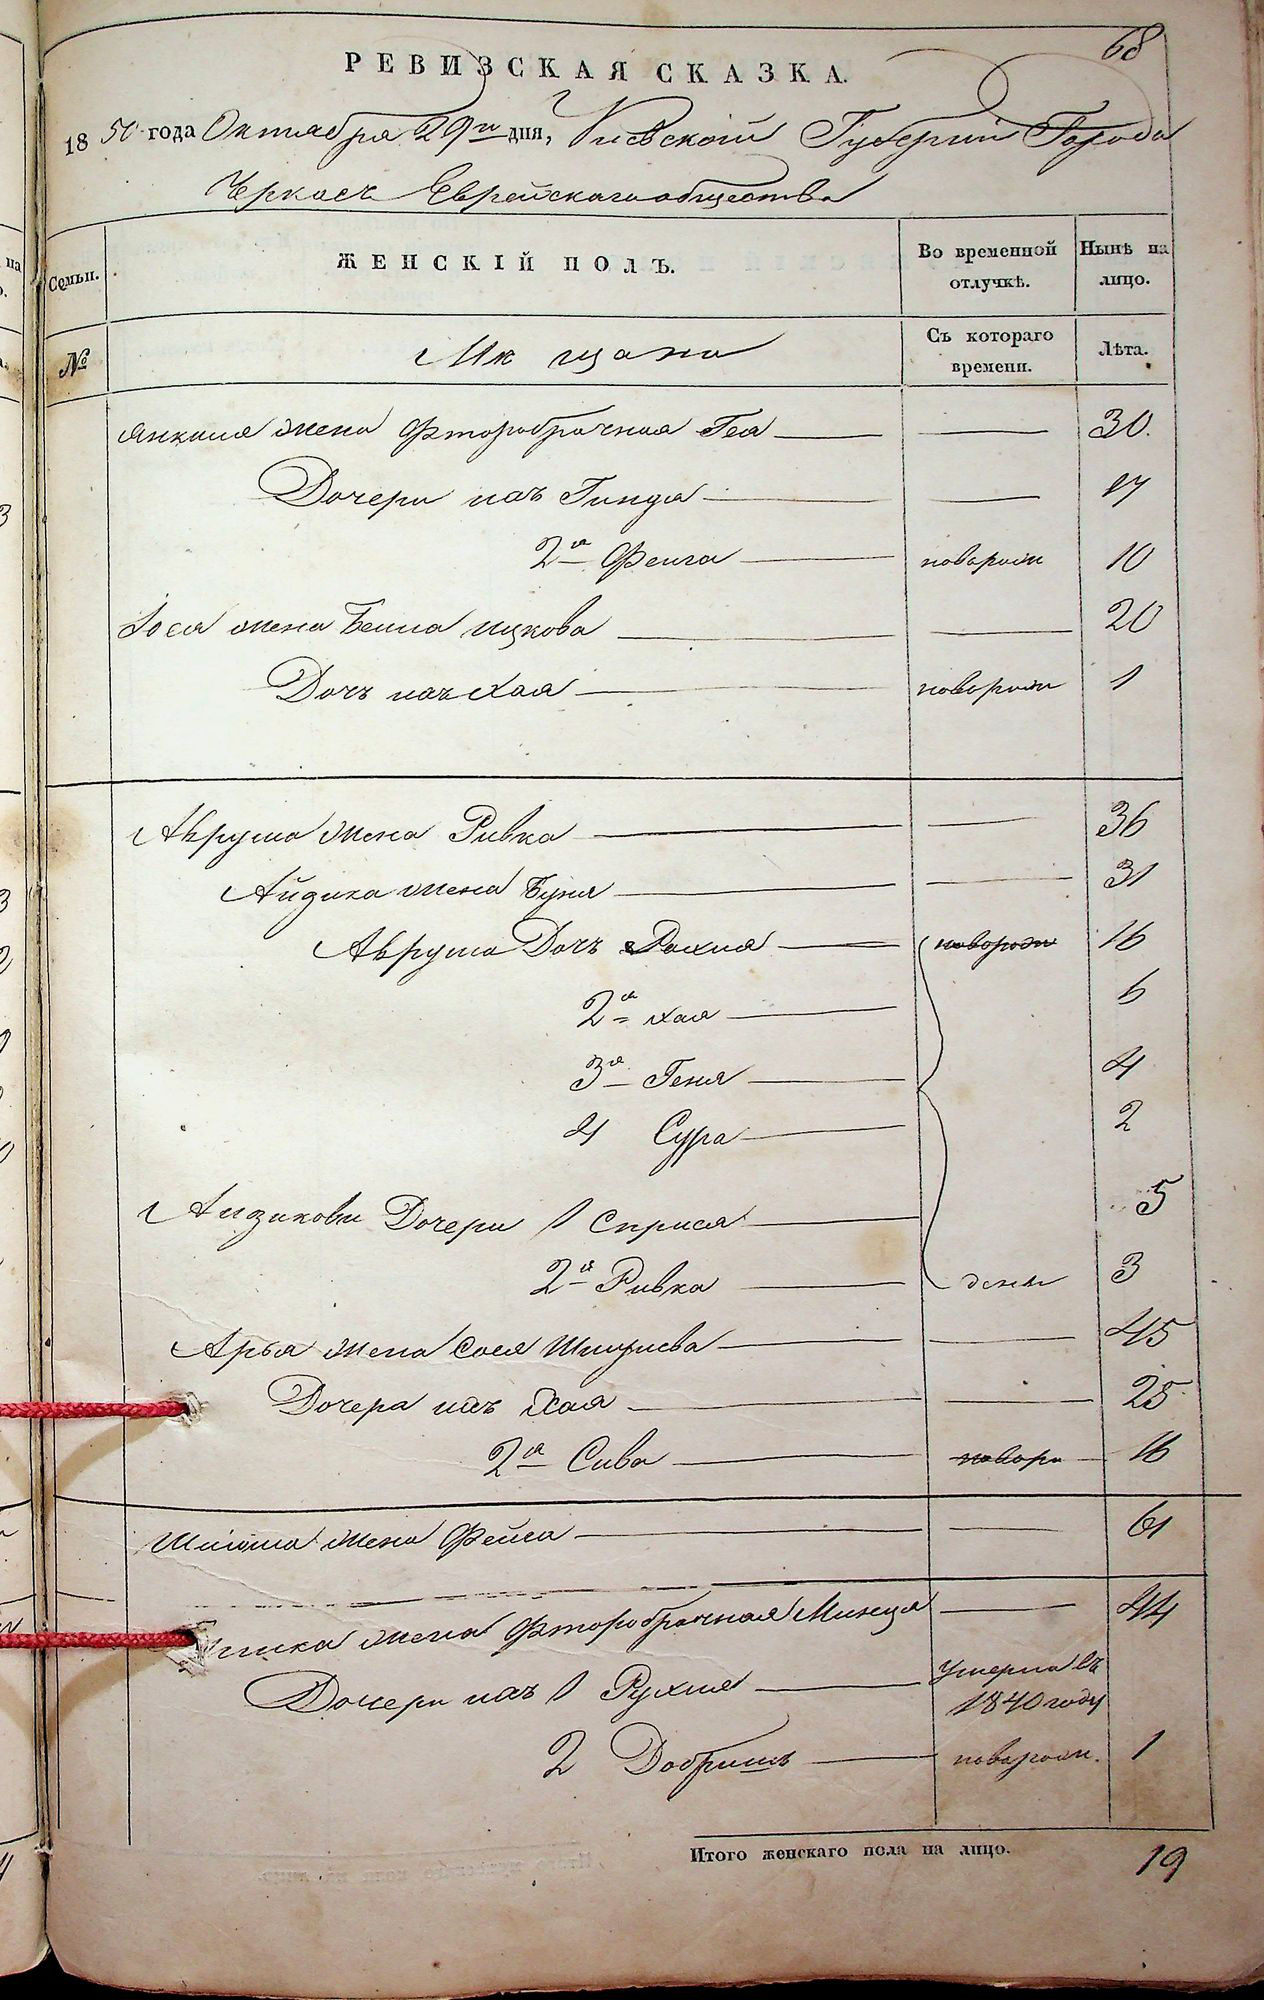 68
РЕВИЗСКАЯ СКАЗКА.
1850 года Октября 29го дня, Киевской Губернии Города
Черкасъ Еврейскаго общества
Семьи. ЖЕНСКІЙ ПОЛЪ. Во временной отлучкѣ. Нынѣ на лицо.
№ Мѣщане Съ котораго времени. Лѣта.
Янкеля жена Фторобрачная Гея 30.
Дочери ихъ Гинда 17
2я Фейга новорож 10
Іося жена Бейла Ицкова 20
Дочь ихъ Хая новорож 1
Аврума жена Ривка 36
Айзика жена Буня 31
Аврума Дочь Рохля новорож 16
2я Хая 6
3я Геня 4
4 Сура 2
Айзикови Дочери 1 Сприся 5
2я Ривка 3
Арья жена Сося 45
Дочери ихъ Хая 25
2я Сива новоро 16
жена Фейга 61
жена Фторобрачная Минця 44
Дочери ихъ 1 Рухля умерла въ 1840 году
2 Добришъ новорож. 1
Итого женскаго пола на лицо. 19